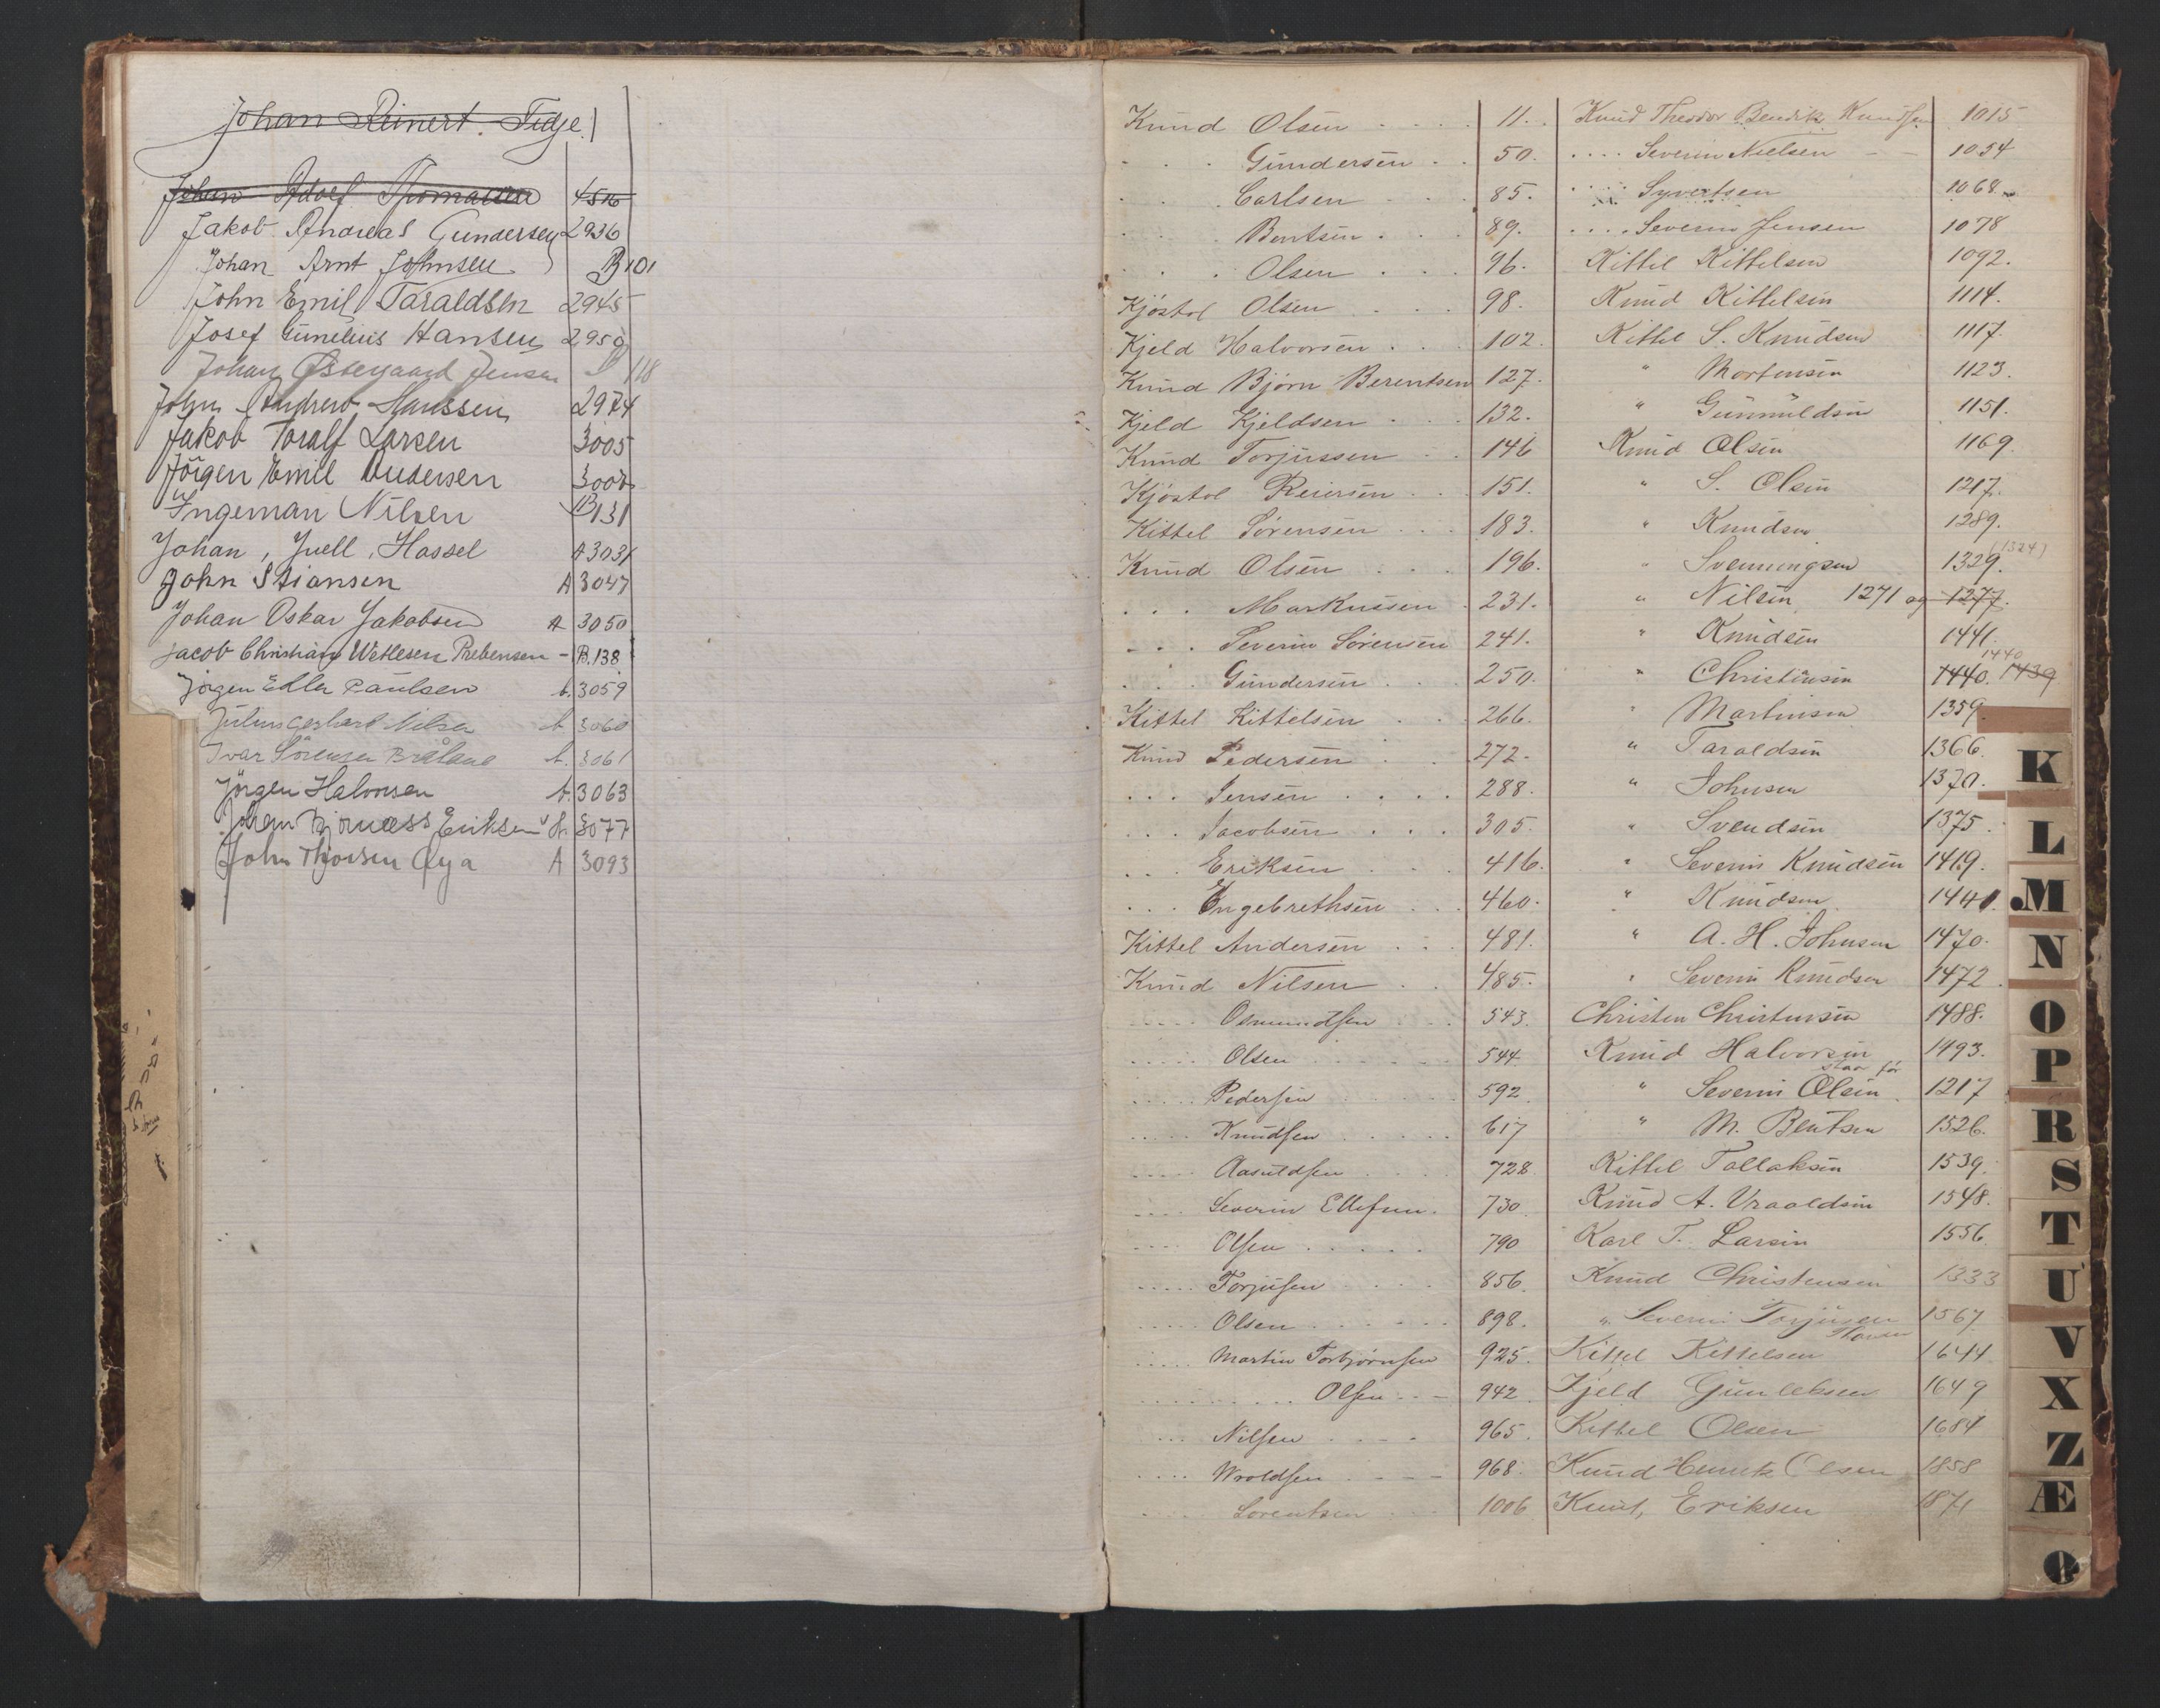 Johan Reinert Tidje
Johan Adolf Thomassen 4516
Jakob Andreas Gundersen 2936
Johan Arnt Johnsen B 101
John Emil Taraldsen 2945
Josef Gunelius Hansen 2959
Johan Østegaard Jensen 118
John Andrew Hanssen 2974
Jakob Toralf Larsen 3005
Jörgen Emil Andersen
Ingeman Nilsen B131
Johan, Juell, Hassel A 3031
John Stiansen A 3047
Johan Oskar Jakobsen A 3050
Jacob Christian Wetlesen Prebensen - B.138
Jörgen Edler Paulsen A. 3059
Julius Gerhard Nilsen A 3060
Ivar Sörensen A. 3061
Jörgen Halvorsen A. 3063
Johan Bjørness Eriksen A. 3077
John Thjorsen Øya A 3093
Knud Olsen 11.
. . . Gundersen 50.
. . . Carlsen 85.
. . . Bentsen 89.
. . . Olsen 96.
Kjöstol Olsen 98.
Kjeld Halvorsen 102.
Knud Bjørn Berentsen 127.
Kjeld Kjeldsen 132.
Knud Torjussen 146
Kjöstol Reiersen 151.
Kittel Sörensen 183.
Knud Olsen 196.
. . . Markussen 231.
. . . Severin Sörensen 241.
. . . Gundersen 250.
Kittel Kittelsen 266.
Knud Pedersen 272.
. . . Jensen 288.
. . . Jacobsen 305.
. . . Eriksen 416.
. . . Engebrethsen 460.
Kittel Andersen 481.
Knud Nilsen 485.
. . . . Osmundsen 543.
. . . . Olsen 544.
. . . . Pedersen 592.
. . . . Knudsen 617
. . . . Aasuldsen 728.
. . . . Severin Ellefsen. 730.
. . . . Olsen 790
. . . . Torjusen 856.
. . . . Olsen 898.
. . . . Martin Torbjørnsen 925.
. . . . Olsen 942.
. . . . Nilsen 965.
. . . . Wroldsen 968.
. . . . Lorentsen 1006
Knud Theodor Bendik Knudsen 1015
. . . . Severin Nielsen 1054
. . . . Syvertsen 1068.
. . . . Severin Jensen 1078
Kittel Kittelsen 1092.
Knud Kittelsen 1114.
Kittel S. Knudsen 1117.
" Mortensen 1123.
" Gunnuldsen 1151.
Knud Olsen 1169.
" S. Olsen 1217.
" Knudsen 1289.
" Svenningsen 1329. (1324)
" Nilsen 1271 og 1277.
" Knudsen 1441.
" Christensen 1440. 1439 1440
" Martinsen 1359
" Taraldsen 1366.
" Johnsen 1370.
" Svendsen 1375.
" Severin Knudsen 1419.
" Knudsen 1441.
" A. H. Johnsen 1470.
" Severin Knudsen 1472.
Christen Christensen 1488.
Knud Halvorsen 1493.
staar før
" Severin Olsen 1217
" M. Bentsen 1526.
Kittel Tallaksen 1539.
Knud A. Vraaldsen 1548.
Karl T. Larsen 1556.
Knud Christensen 1333
" Severin Torjusen 1567
Kittel Kittelsen 1644
Kjeld Gunleksen 1649
Kittel Olsen 1684
Knud Olsen 1858
Knut, Eriksen 1871
K
L
M
N
O
P
R
S
T
U
V
X
Z
Æ
Ø